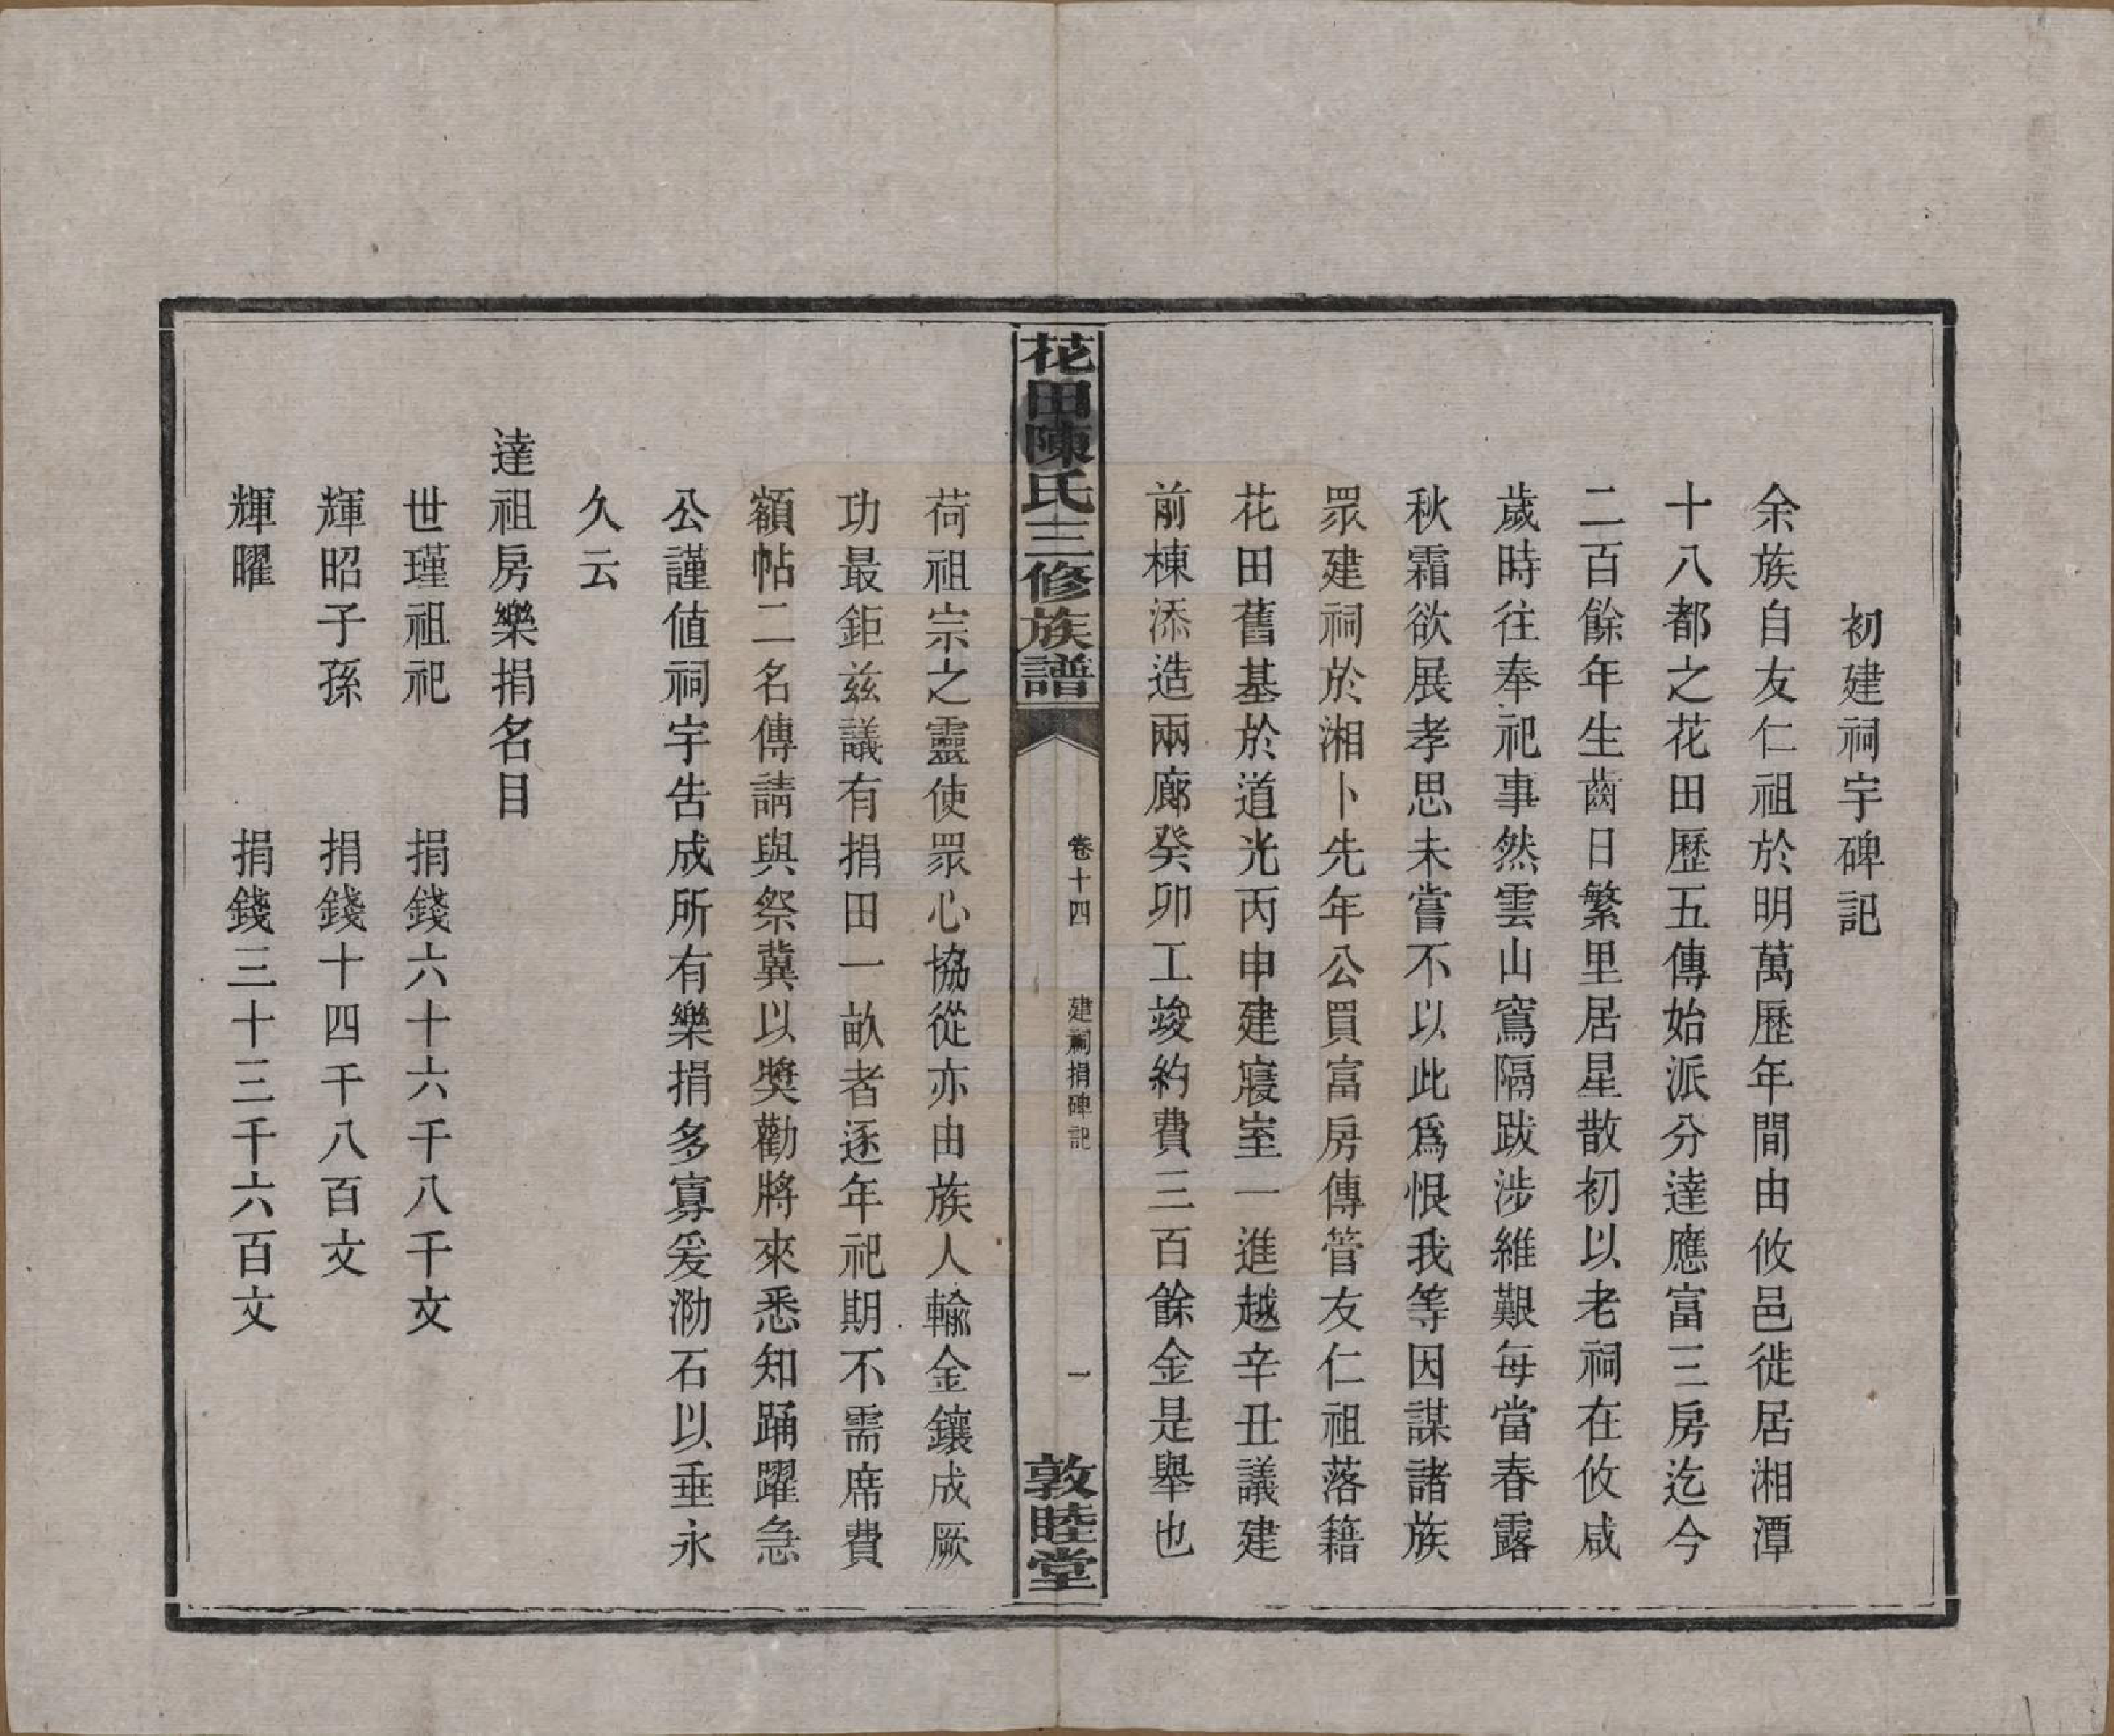 初建祠宇碑記
余族自友仁祖於明萬歷年間由攸邑徙居湘潭
十八都之花田歷五傳始派分達應富三房迄今
二百餘年生齒日繁里居星散初以老祠在攸咸
歲時往奉祀事然雲山窵隔跋涉維艱每當春露
秋霜欲展孝思未嘗不以此爲恨我等因謀諸族
眾建祠於湘卜先年公買富房傳管友仁祖落籍
花田舊基於道光丙申建寢室一進越辛丑議建
前棟添造兩廊癸卯工竣約費三百餘金是舉也
花田陳氏三修族譜
卷十四
建祠捐碑記
一
敦睦堂
荷祖宗之靈使眾心協從亦由族人輸金鑲成厥
功最鉅兹議有捐田一畝者逐年祀期不需席費
額帖二名傳請與祭冀以獎勸將來悉知踊躍急
公謹値祠宇告成所有樂捐多寡爰泐石以垂永
久云
達祖房樂捐名目
世瑾祖祀 捐錢六十六千八千文
輝昭子孫 捐錢十四千八百文
輝曜 捐錢三十三千六百文